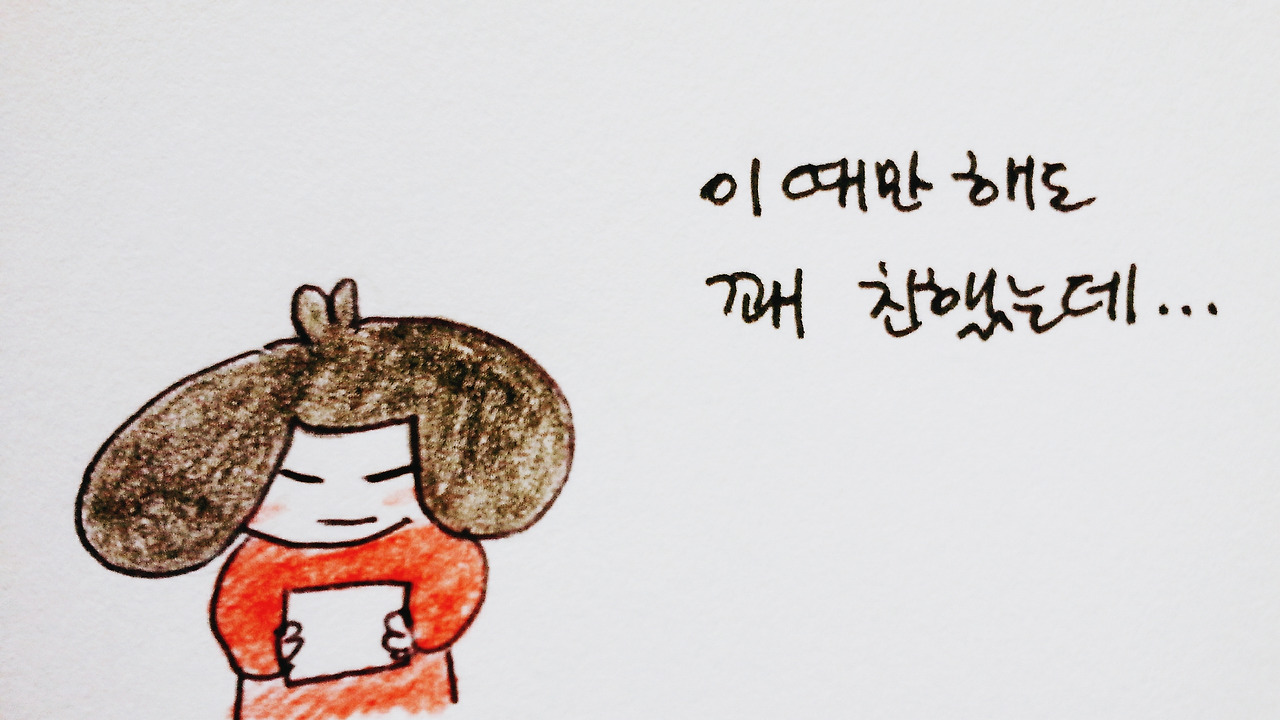 이 때만 해도
꽤 친했는데...